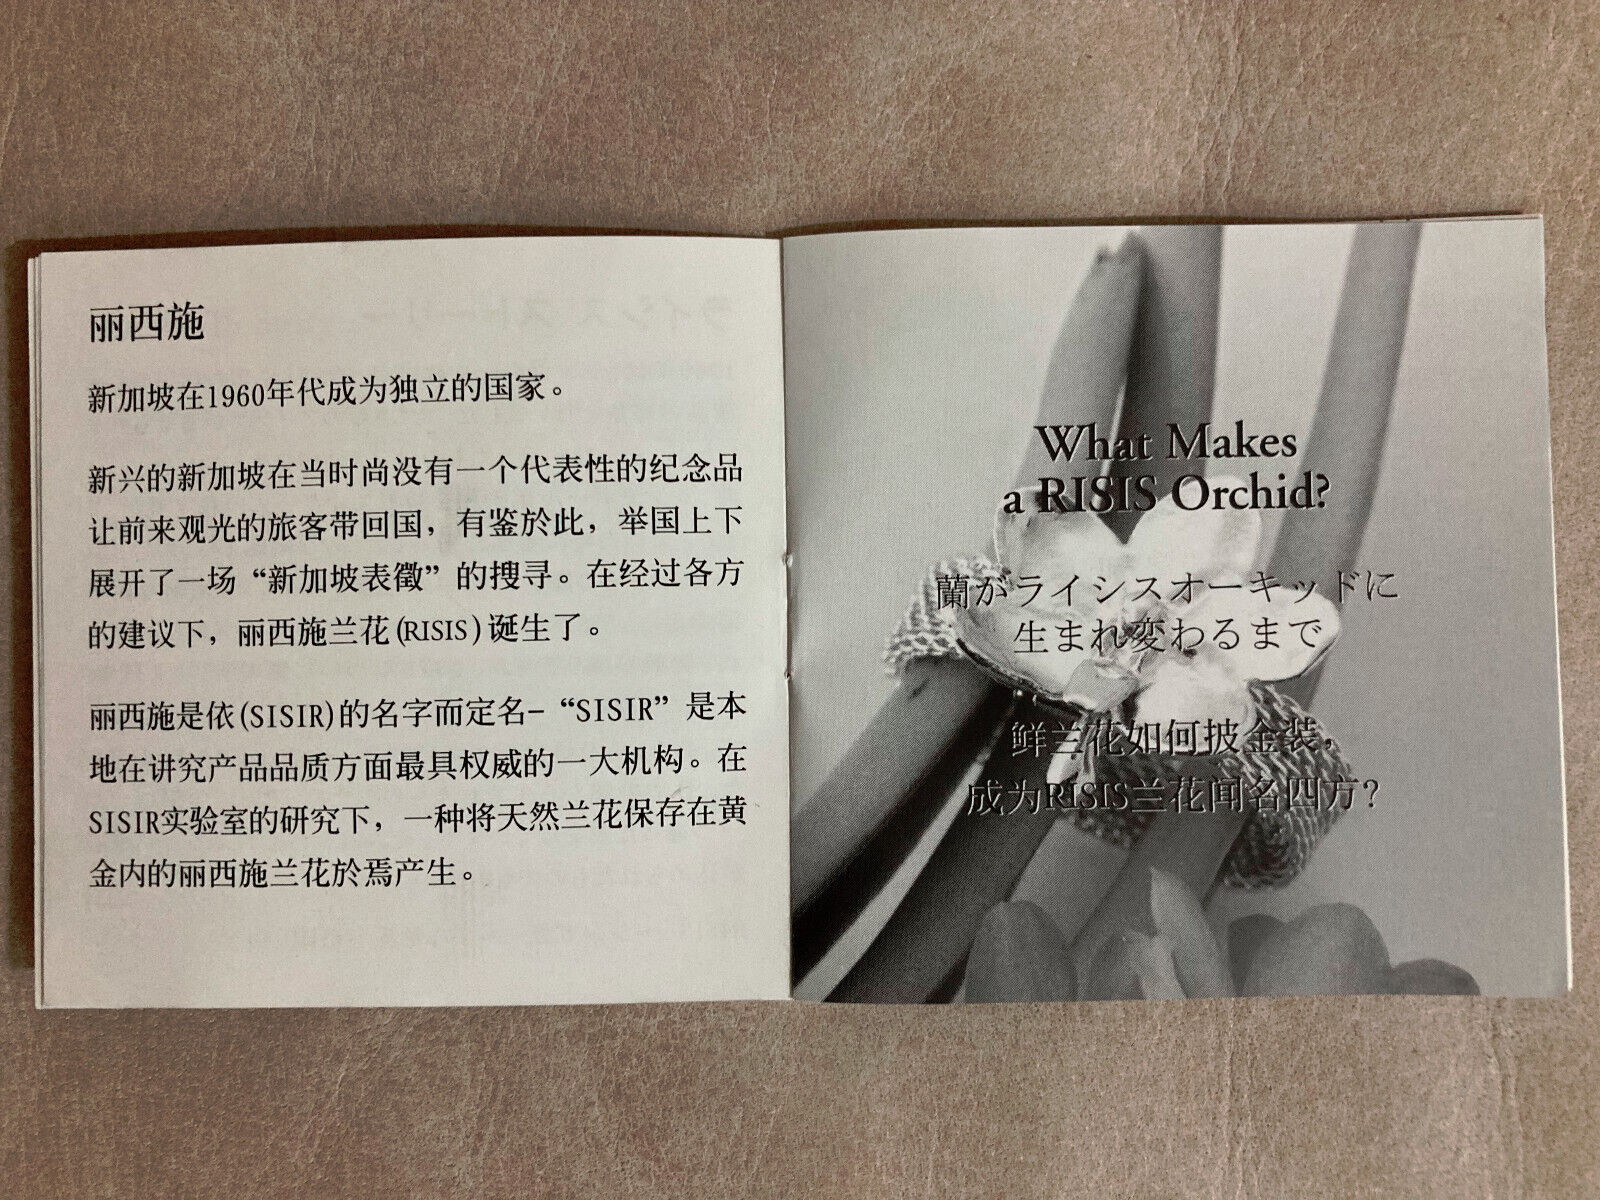 丽西施
新加坡在1960年代成为独立的国家。
新兴的新加坡在当时尚没有一个代表性的纪念品
让前来观光的旅客带回国，有鉴於此，举国上下
展开了一场“新加坡表徵”的搜寻。在经过各方
的建议下，丽西施兰花(RISIS)诞生了。
丽西施是依(SISIR)的名字而定名–“SISIR”是本
地在讲究产品品质方面最具权威的一大机构。在
SISIR实验室的研究下，一种将天然兰花保存在黄
金内的丽西施兰花於焉产生。
What Makes
a RISIS Orchid?
蘭がライシスオーキッドに
生まれ変わるまで
鲜兰花如何披金装，
成为RISIS兰花闻名四方？